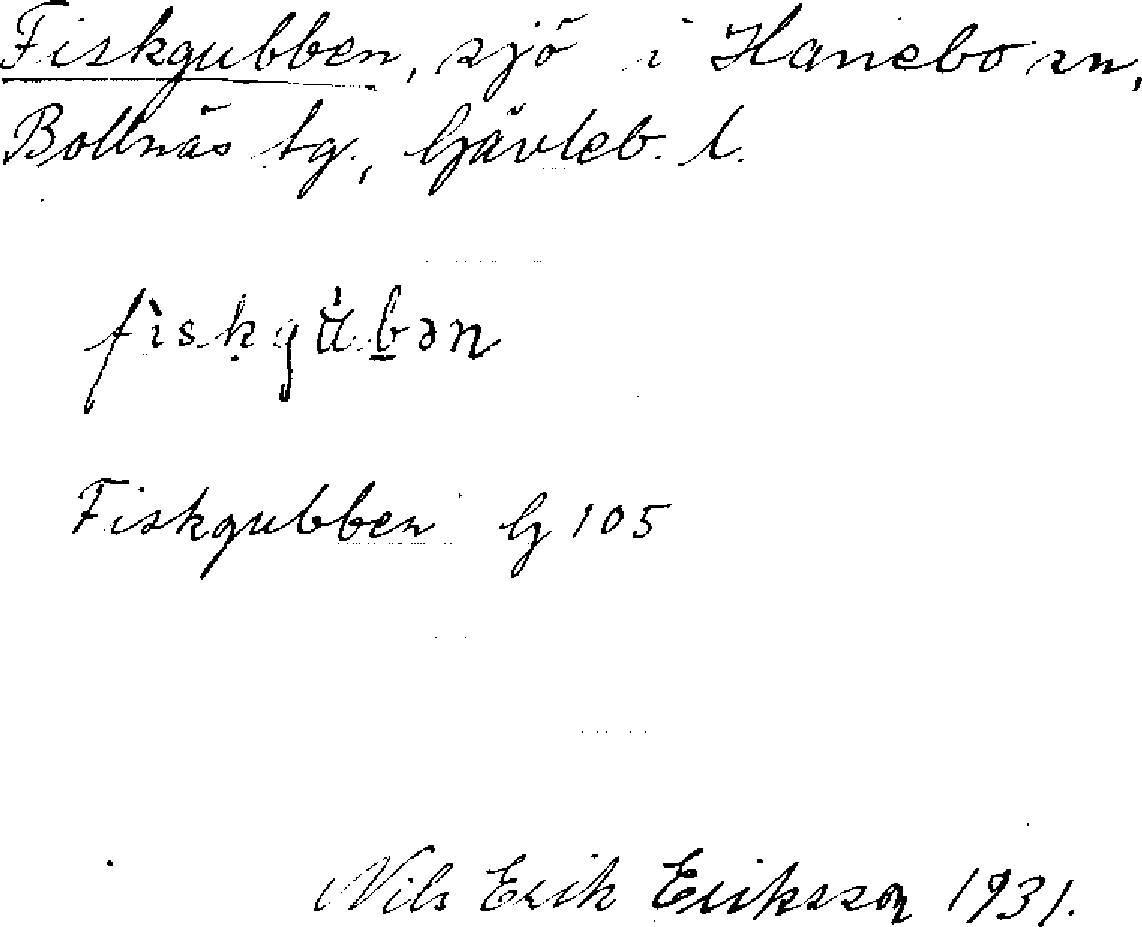 Fiskgubben, sjö i Hanebo sn,
Bollnäs tg., Gävleb. l.
fiskgùbən
Fiskgubben G 105
Nils Erik Eriksson 1931.